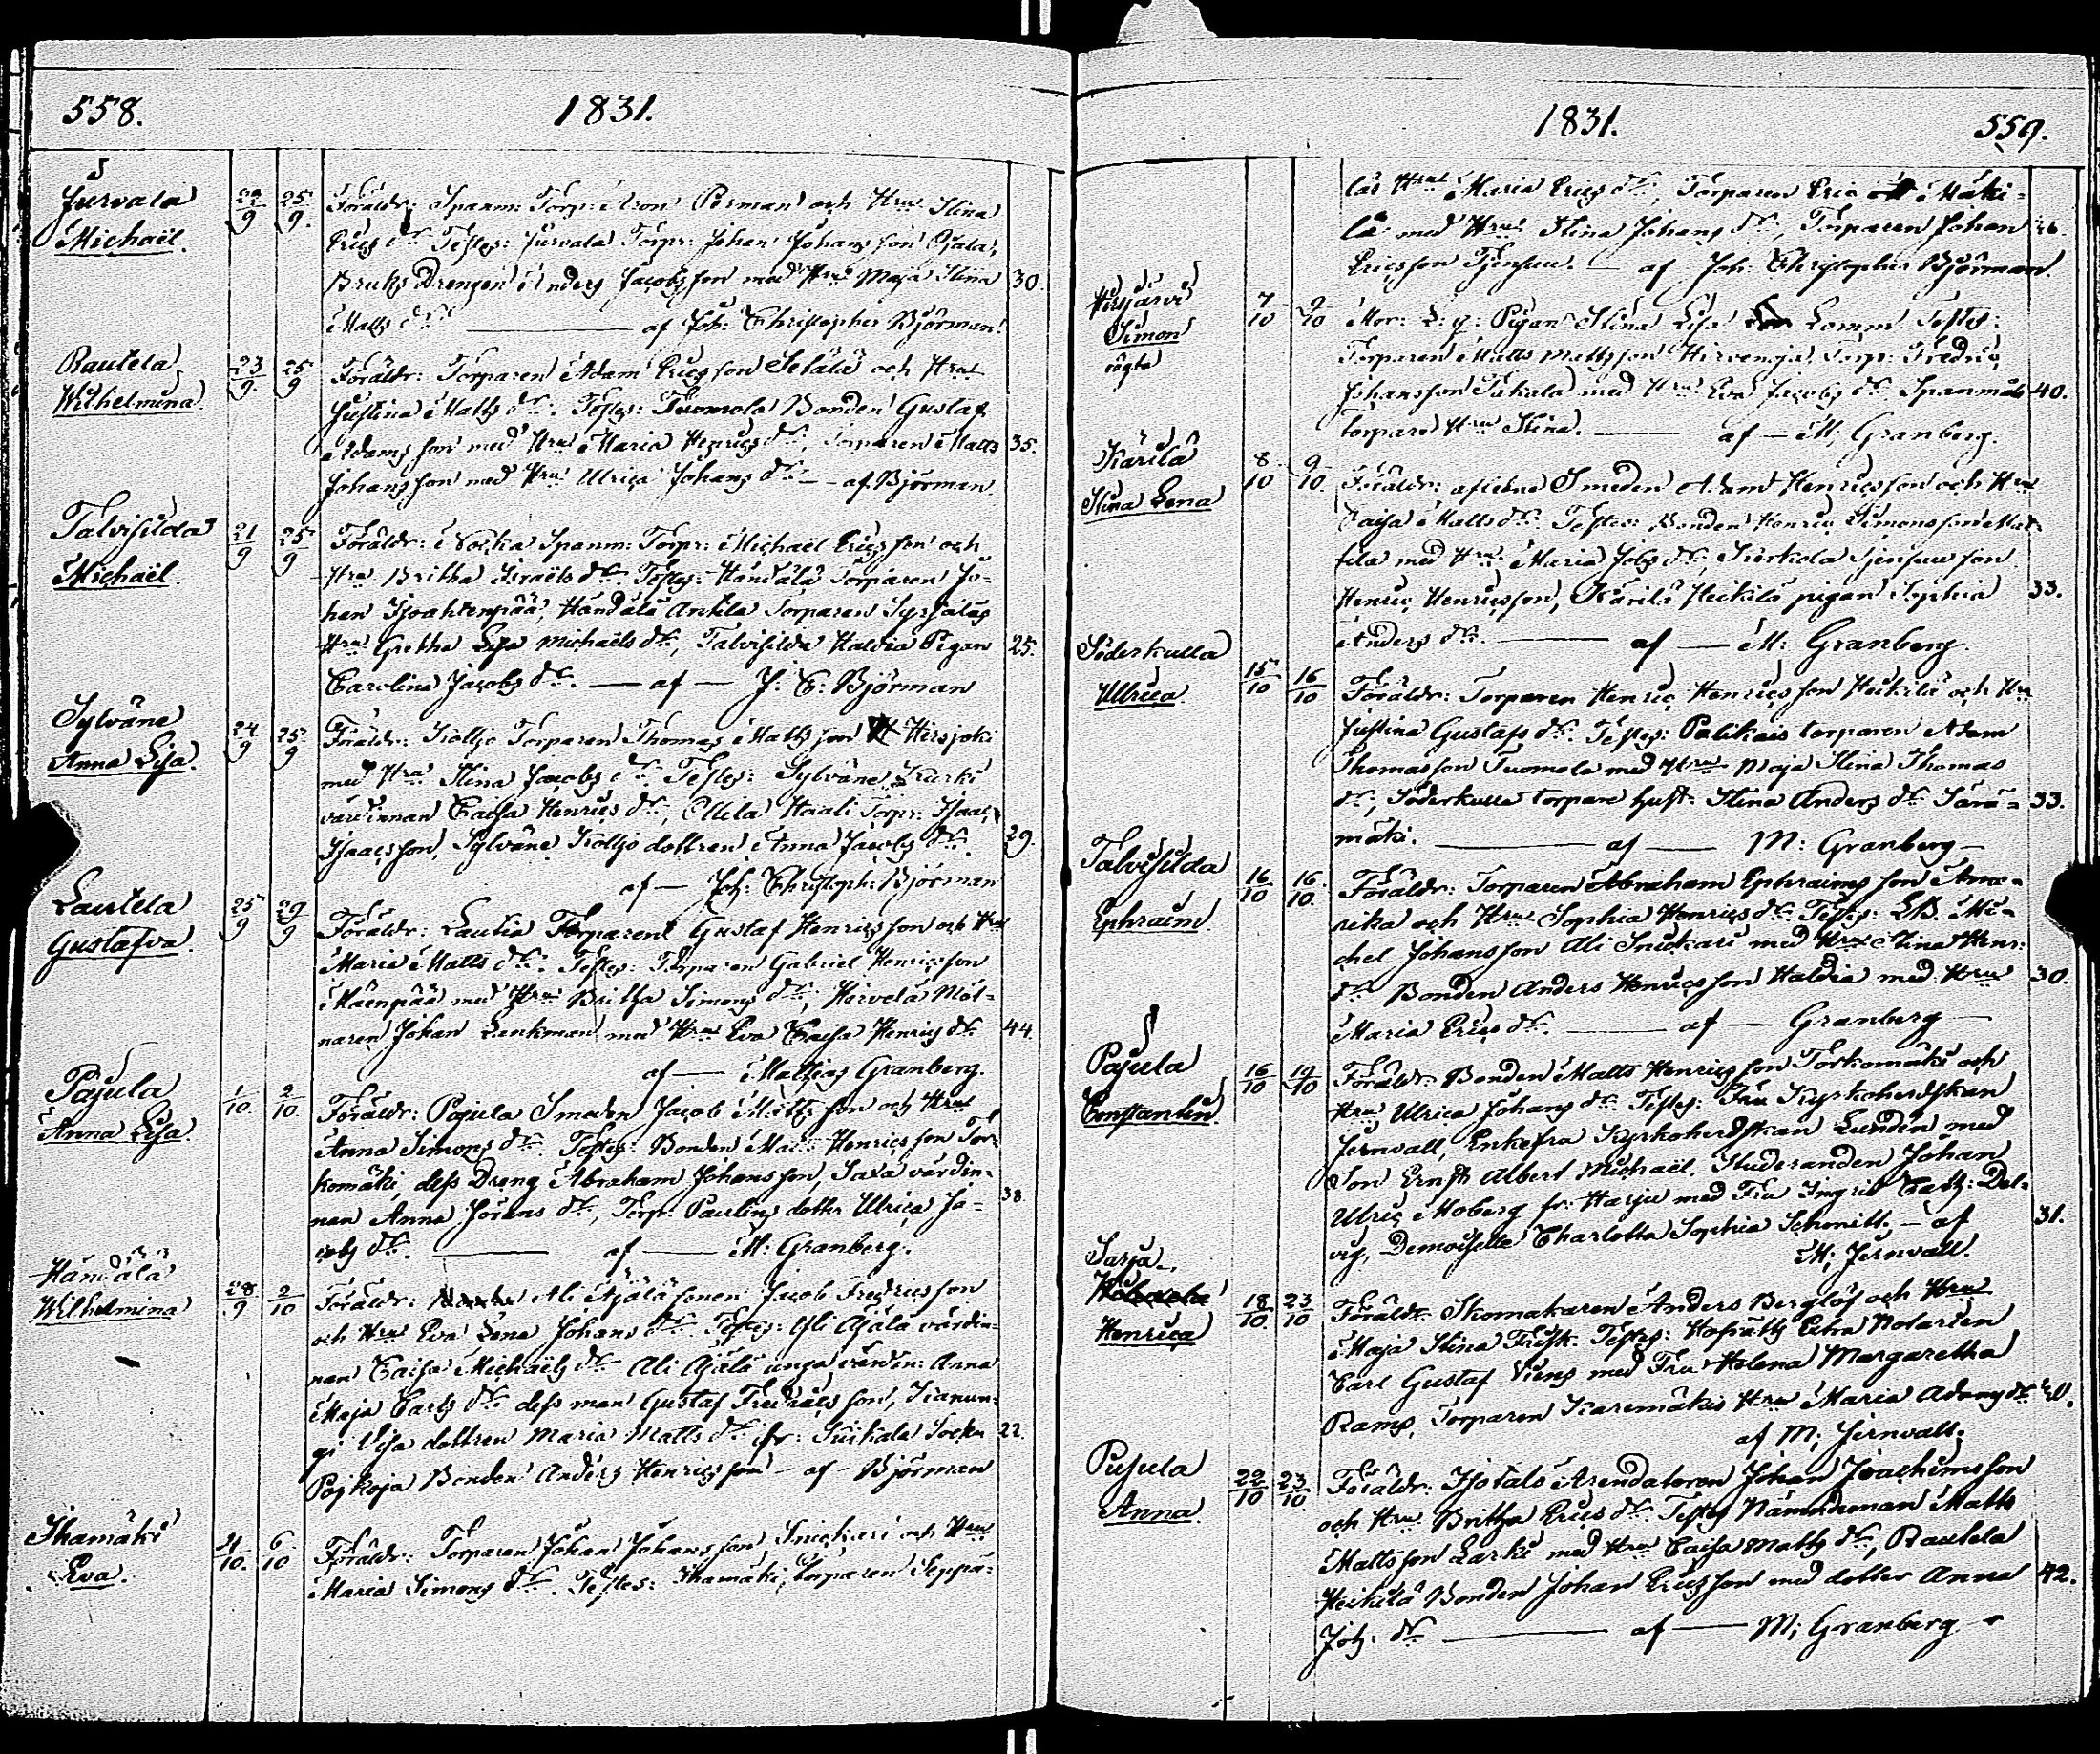 558.
1831.
Jurvala 22/9 25/9. Föräldr: Spanm: Torp: Aron Perman och Hru Stina
Michaël. Erics dr. Testes: Jurvala Torpr: Johan Johansson Ojala,
Bruks Drengen Anders Jacobsson med Hru Maja Stina 30.
Matts dr. — af Joh: Christopher Björman.
Rautela 23/9. 25/9 Föräldr: Torparen Adam Ericsson Setälä och Hru
Wilhelmina. Justina Matts dr. Testes: Tuomola Bonden Gustaf
Adamsson med Hru Maria Henrics dr, Torparen Matts 35.
Johansson med Hru Ulrica Johans dr. — af Björman.
Talvisilda 21/9 25/9 Föräldr: Nocka Spanm: Torpr: Michaël Ericsson och
Michaël. Hru Britha Israëls dr. Testes: Händälä Torparen Jo-
han Isoahtenpää, Händälä Anttila Torparen
Hru Gretha Lisa Michaëls dr, Talvisilda Haldia Pigan 25.
Carolina Jacobs dr. — af — J. C: Björman
Sylväne 24/9 25/9 Föräldr: Kolljo Torparen Thomas Mattsson Hirsjoki
Anna Lisa. med Hru Stina Jacobs dr. Testes: Sylväne Kurki
värdinnan Caisa Henrics dr, Ollila Haali Torpr: Isaac
Isaacsson, Sylväne Kolljo dottren Anna Jacobs dr. 29.
af — Joh: Christoph: Björman
Lautela 25/9 29/9 Föräldr: Lautia Torparen Gustaf Henricsson och Hru
Gustafva. Maria Matts dr. Testes: Torparen Gabriel Henricsson
Mäenpää med Hru Britha Simons dr, Hirvelä Möl-
naren Johan Lankman med Hru Eva Caisa Henrics dr. 44.
af — Mathias Granberg.
Pajula 1/10. 2/10 Föräldr: Pajula Smeden Jacob Mattsson och Hru
Anna Lisa. Anna Simons dr. Testes: Bonden Matts Henricsson Tor-
komäki, dess Dreng Abraham Johansson, Saxa värdin-
nan Anna Jörans dr, Torpr Paulins dotter Ulrica Ja- 38.
cobs dr. — af — M: Granberg.
Händälä 28/9 2/10 Föräldr: Ali Äjälä sonen Jacob Fredricsson
Wilhelmina och Hru Eva Lena Johans dr. Testes: Yli Äjälä värdin-
nan Caisa Michaëls dr. Ali Äjälä unga värdin: Anna
Maja Carls dr. dess man Gustaf Fredricsson,
dottren Maria Matts dr fr: 22.
Bonden Anders Henricsson — af — Björman
Ihamäki 4/10. 6/10 Föräldr: Torparen Johan Johansson Snickari och Hru
Eva. Maria Simons dr. Testes: Ihamäki, Torparen Seppä-
1831.
559.
läs Hru Maria Erics dr, Torparen Eric Mäki-
lä med Hru Stina Johans dr, Torparen Johan 26.
Ericsson — af Joh: Christopher Björman.
Hirsjärvi 7/10 9/10 Mor: L: q: Pigan Stina Lisa Lamm. Testes:
Simon Torparen Matts Mattsson Hirvenoja, Torpr: Fredric
oägta Johansson Takala med Hru Eva Jacobs dr, Spanmåls 40.
torpare Hru Stina. — af — M: Granberg.
Kärilä 8/10 9/10. Föräldr: aflidne Smeden Adam Henricsson och Hru
Stina Lena Caisa Matts dr. Testes: Bonden Henric Simonsson Mat-
tila med Hru Maria Johs dr,
Henric Henricsson, Kärilä Heikilä pigan Sophia 33.
Anders dr. — af — M: Granberg.
Söderkulla 15/10 16/10 Föräldr: Torparen Henric Henricsson Heikilä och Hru
Ulrica. Justina Gustafs dr. Testes: Palikais torparen Adam
Thomasson Tuomola med Hru Maja Stina Thomas
dr, Söderkulla torpare hust: Stina Anders dr. Särä- 33.
mäki. — af — M: Granberg —
Talvisilda 16/10 16/10. Föräldr: Torparen Abraham Ephraimsson Ame-
Ephraim. rika och Hru Sophia Henrics dr. Testes: LB. Mi-
chel Johansson Ali Snickari med Hru Stina Henr:
dr. Bonden Anders Henricsson Haldia med Hru 30.
Maria Erics dr. — af — Granberg —
Pajula 16/10 19/10 Föräldr: Bonden Matts Henricsson Torkomäki och
Constantin. Hru Ulrica Johans dr. Testes: Fru Kyrkoherdskan
Jernvall, Enkefru Kyrkoherdskan Lunden med
Son Ernst Albert Michaël, Studeranden Johan
Ulric Moberg fr: Harju med Fru Ingrid Cath: Dal-
vig, Demoiselle Charlotta Sophia Schmitt. — af 31.
M: Jernvall.
Sarja.
Henrica 18/10 23/10 Föräldr: Skomakaren Anders Berglöf och Hru
Maja Stina Frisk. Testes: Hofrätts Extra Notarien
Carl Gustaf Viens med Fru Helena Margaretha
Ramp, Torparen Karemäkis Hru Maria Adams dr. 40.
af M: Jernvall.
Pajula 22/10 23/10 Föräldr: Isotalo Arendatoren Johan Joachimsson
Anna. och Hru Britha Erics dr. Testes Nämndeman Matts
Mattsson Larki med Hru Caisa Matts dr, Rautela
Heikilä Bonden Johan Ericsson med dotter Anna 42.
Joh: dr. — af — M: Granberg —